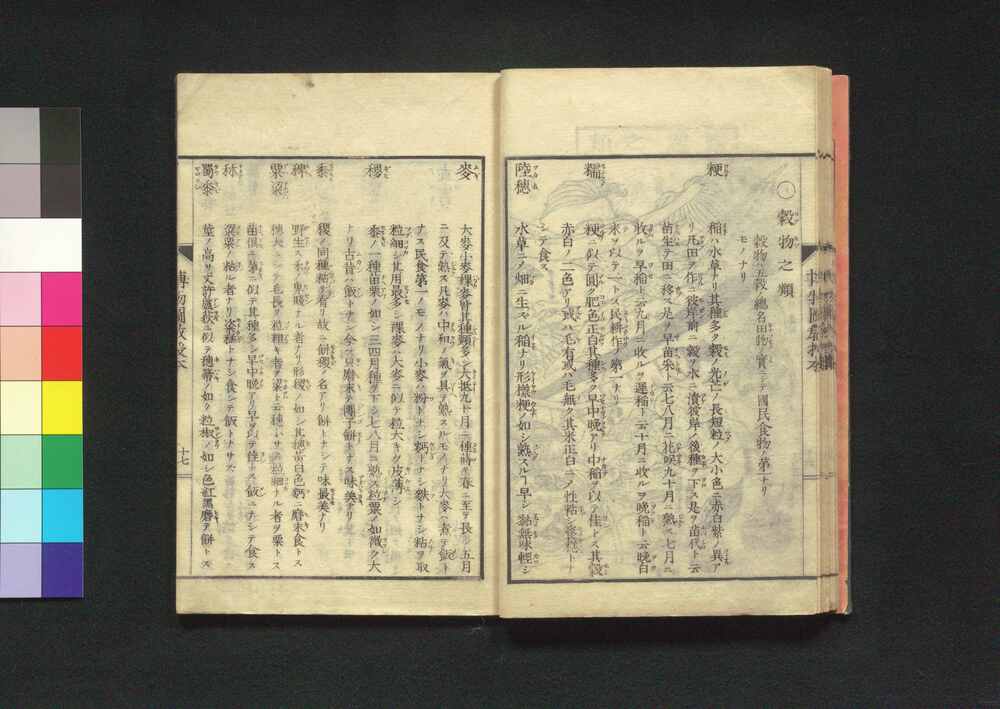 ○穀物之類
穀物ハ五穀ノ總名田物ノ實ニシテ國民食物ノ第一ナリ
モノナリ
粳
稲ハ水草ナリ其種多ク穀ノ光芒ノ長短粒ノ大小色ニ赤白紫ノ異ア
リ凡田ヲ作ル彼岸前ニ穀ヲ水ニ漬彼岸ノ後種ヲ下ス是ヲ苗代ト云
苗生シテ田ニ移ス是ヲ早苗ト云七八月ニ花咲九十月ニ熟ス七月ニ
收ルヲ早稲ト云九月ニ收ルヲ遅稲ト云十月ニ收ルヲ晩稲ト云晩白
米ヲ以テ一トス民耕作ノ第一ナリ
糯
粳ニ似テ圓ク肥色正白其種多ク早中晩アリ中稲ヲ以テ佳トス其穀
赤白ノ二色アリ或ハ毛有或ハ毛無ク其米正白ニメ性粘シ餈糕トナ
シテ食ス
陸穂
水草ニメ畑ニ生スル稲ナリ形状粳ノ如シ熟スルー早シ黏無味輕シ
麥
大麥小麥稞麥皆其種類多シ大抵九十月ニ種蒔キ春ニ至テ長シ五月
ニ及テ熟ス凡麥ハ中和ノ氣ヲ具テ熟スルモノナリ大麥ハ煮テ飯ト
ナス民食第一ノモノナリ小麥ハ粉トナシ麪トナシ麩トナシ粘ヲ取
粒細シ其用最多シ稞麥ハ大麥ニ似テ粒大キク皮薄シ
稷
黍ノ一種苗粟ノ如シ三四月種ヲ下シ七八月ニ熟ス粒粟ノ如ク微ク大
ナリ古昔ハ飯トナシ今ハ只磨末テ團子餅トナス味美ナリ
黍
稷ノ同種粘キ者ナリ故ニ餅稷ノ名アリ餅トナシテ味最美ナリ
稗
野生ス木ノ卑賤ナル者ナリ形稷ノ如シ其種黄白色麪ニ磨末食トス
粟粱
穂大ニシテ毛長ク粒粗キ者ヲ粱ト云穂小サク粒細ナル者ヲ粟トス
苗俱ニ茅ニ似テ其種多シ早中晩アリ早ヲ以テ佳トス飯ニナシテ食ス
秫
粱粟ノ粘ル者ナリ粢糕トナシ食シテ飯トナサス
蜀黍
莖ノ高サ丈許蘆荻ニ似テ穂箒ノ如ク粒椒ノ如シ色紅黒磨テ餅トス
博物圖教授本
十七